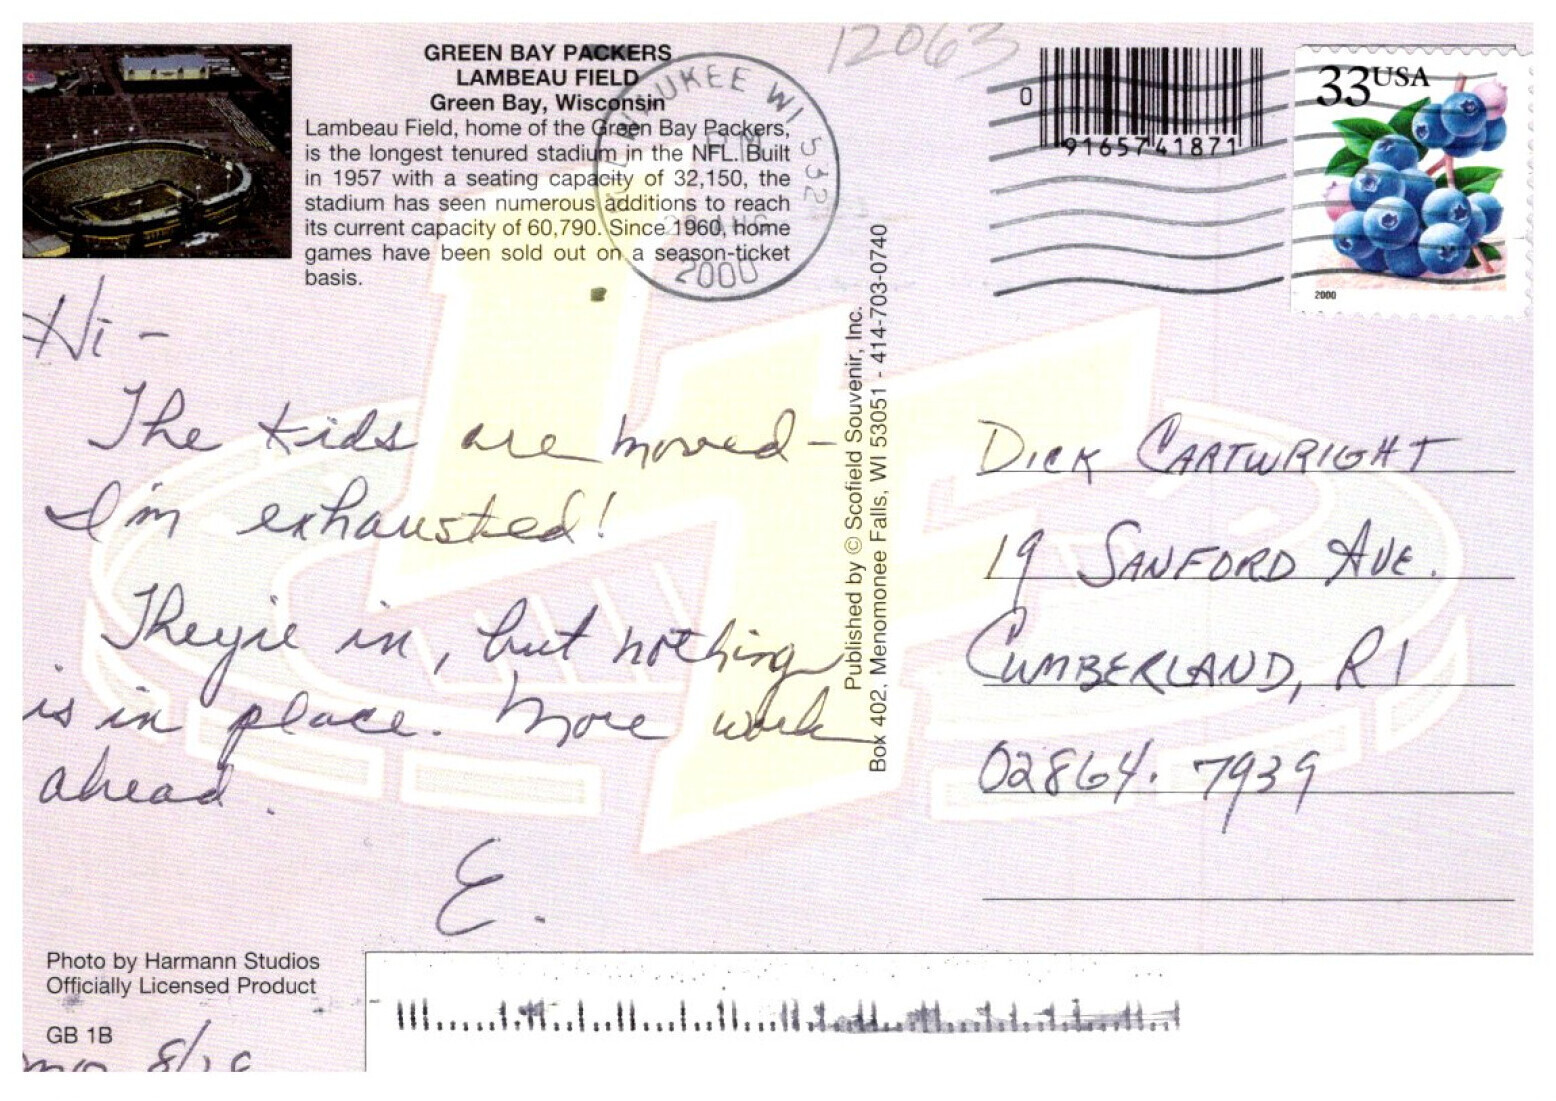 12063
GREEN BAY PACKERS
LAMBEAU FIELD
Green Bay, Wisconsin
Lambeau Field, home of the Green Bay Packers,
is the longest tenured stadium in the NFL. Built
in 1957 with a seating capacity of 32,150, the
stadium has seen numerous additions to reach
its current capacity of 60,790. Since 1960, home
games have been sold out on a season-ticket
basis.
MILWAUKEE WI 532
PM
AUG
2000
0
91657 41871
33USA
2000
Hi -
The kids are moved -
I'm exhausted!
They're in, but nothing
is in place. More work
ahead.
E.
Published by © Scofield Souvenir, Inc.
Box 402, Menomonee Falls, WI 53051 - 414-703-0740
DICK CARTWRIGHT
19 SANFORD AVE.
CUMBERLAND, RI
02864. 7939
Photo by Harmann Studios
Officially Licensed Product
GB 1B